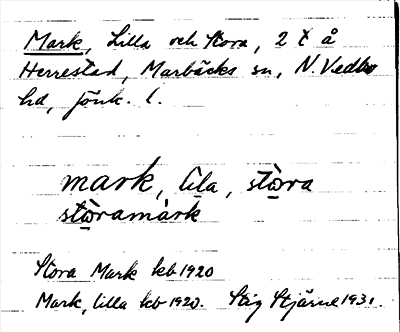 Mark, Lilla och Stora, 2 t å
Herrestad, Marbäcks sn, N. Vedbo
hd, Jönk. l.
mark, lila, stòra
stòramàrk
Stora Mark kb 1920
Mark, lilla kb 1920. Stig Stjärne 1931.